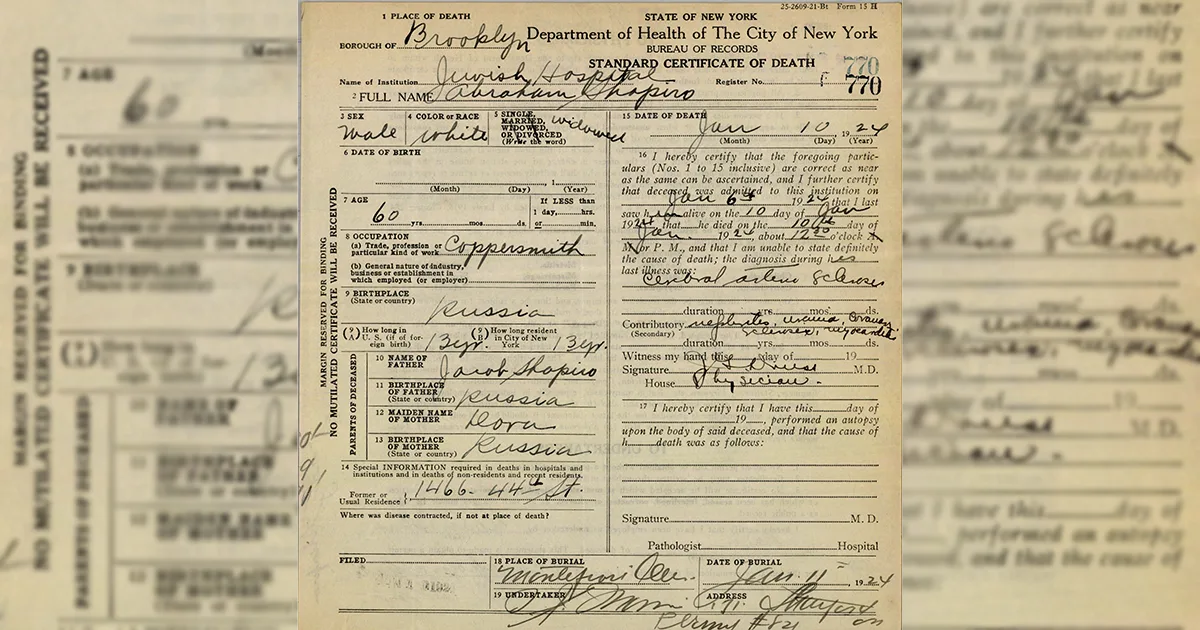 25-2609-21-Bt Form 15 H
1 PLACE OF DEATH
STATE OF NEW YORK
BOROUGH OF Brooklyn
Department of Health of The City of New York
BUREAU OF RECORDS
STANDARD CERTIFICATE OF DEATH
Name of Institution Jewish Hospital
Register No. 770
770
2 FULL NAME Abraham Shapiro
3 SEX
male
4 COLOR OR RACE
white
5 SINGLE,
MARRIED,
WIDOWED,
OR DIVORCED
(Write the word)
widowed
6 DATE OF BIRTH
, 1
(Month) (Day) (Year)
7 AGE
60 yrs. mos. ds.
If LESS than
1 day, hrs.
or min.
8 OCCUPATION
(a) Trade, profession or
particular kind of work
Coppersmith
(b) General nature of industry,
business or establishment in
which employed (or employer)
9 BIRTHPLACE
(State or country)
Russia
(A) How long in
U. S. (if of for-
eign birth) 13 yr.
(B) How long resident
in City of New
York 13 yr.
PARENTS OF DECEASED
10 NAME OF
FATHER
Jacob Shapiro
11 BIRTHPLACE
OF FATHER
(State or country)
Russia
12 MAIDEN NAME
OF MOTHER
Dora
13 BIRTHPLACE
OF MOTHER
(State or country)
Russia
14 Special INFORMATION required in deaths in hospitals and
institutions and in deaths of non-residents and recent residents.
Former or
Usual Residence 1466 - 44th St.
Where was disease contracted, if not at place of death?
FILED
MARGIN RESERVED FOR BINDING
NO MUTILATED CERTIFICATE WILL BE RECEIVED
15 DATE OF DEATH
Jan 10, 1924
(Month) (Day) (Year)
16 I hereby certify that the foregoing partic-
ulars (Nos. 1 to 15 inclusive) are correct as near
as the same can be ascertained, and I further certify
that deceased was admitted to this institution on
Jan 6th 1924, that I last
saw him alive on the 10 day of Jan
1924, that he died on the 10th day of
Jan. 1924, about 12:30 o'clock A.
M. or P. M., and that I am unable to state definitely
the cause of death; the diagnosis during his
last illness was:
Cerebral arterio sclerosis
duration yrs. mos. ds.
Contributory nephritis, uremia,
(Secondary) sclerosis, myocarditis
duration yrs. mos. ds.
Witness my hand this day of 19
Signature M.D.
House Physician.
17 I hereby certify that I have this day of
19, performed an autopsy
upon the body of said deceased, and that the cause of
h death was as follows:
Signature M. D.
Pathologist Hospital
18 PLACE OF BURIAL
Montefiore Cem.
DATE OF BURIAL
Jan. 11 1924
19 UNDERTAKER
ADDRESS
171